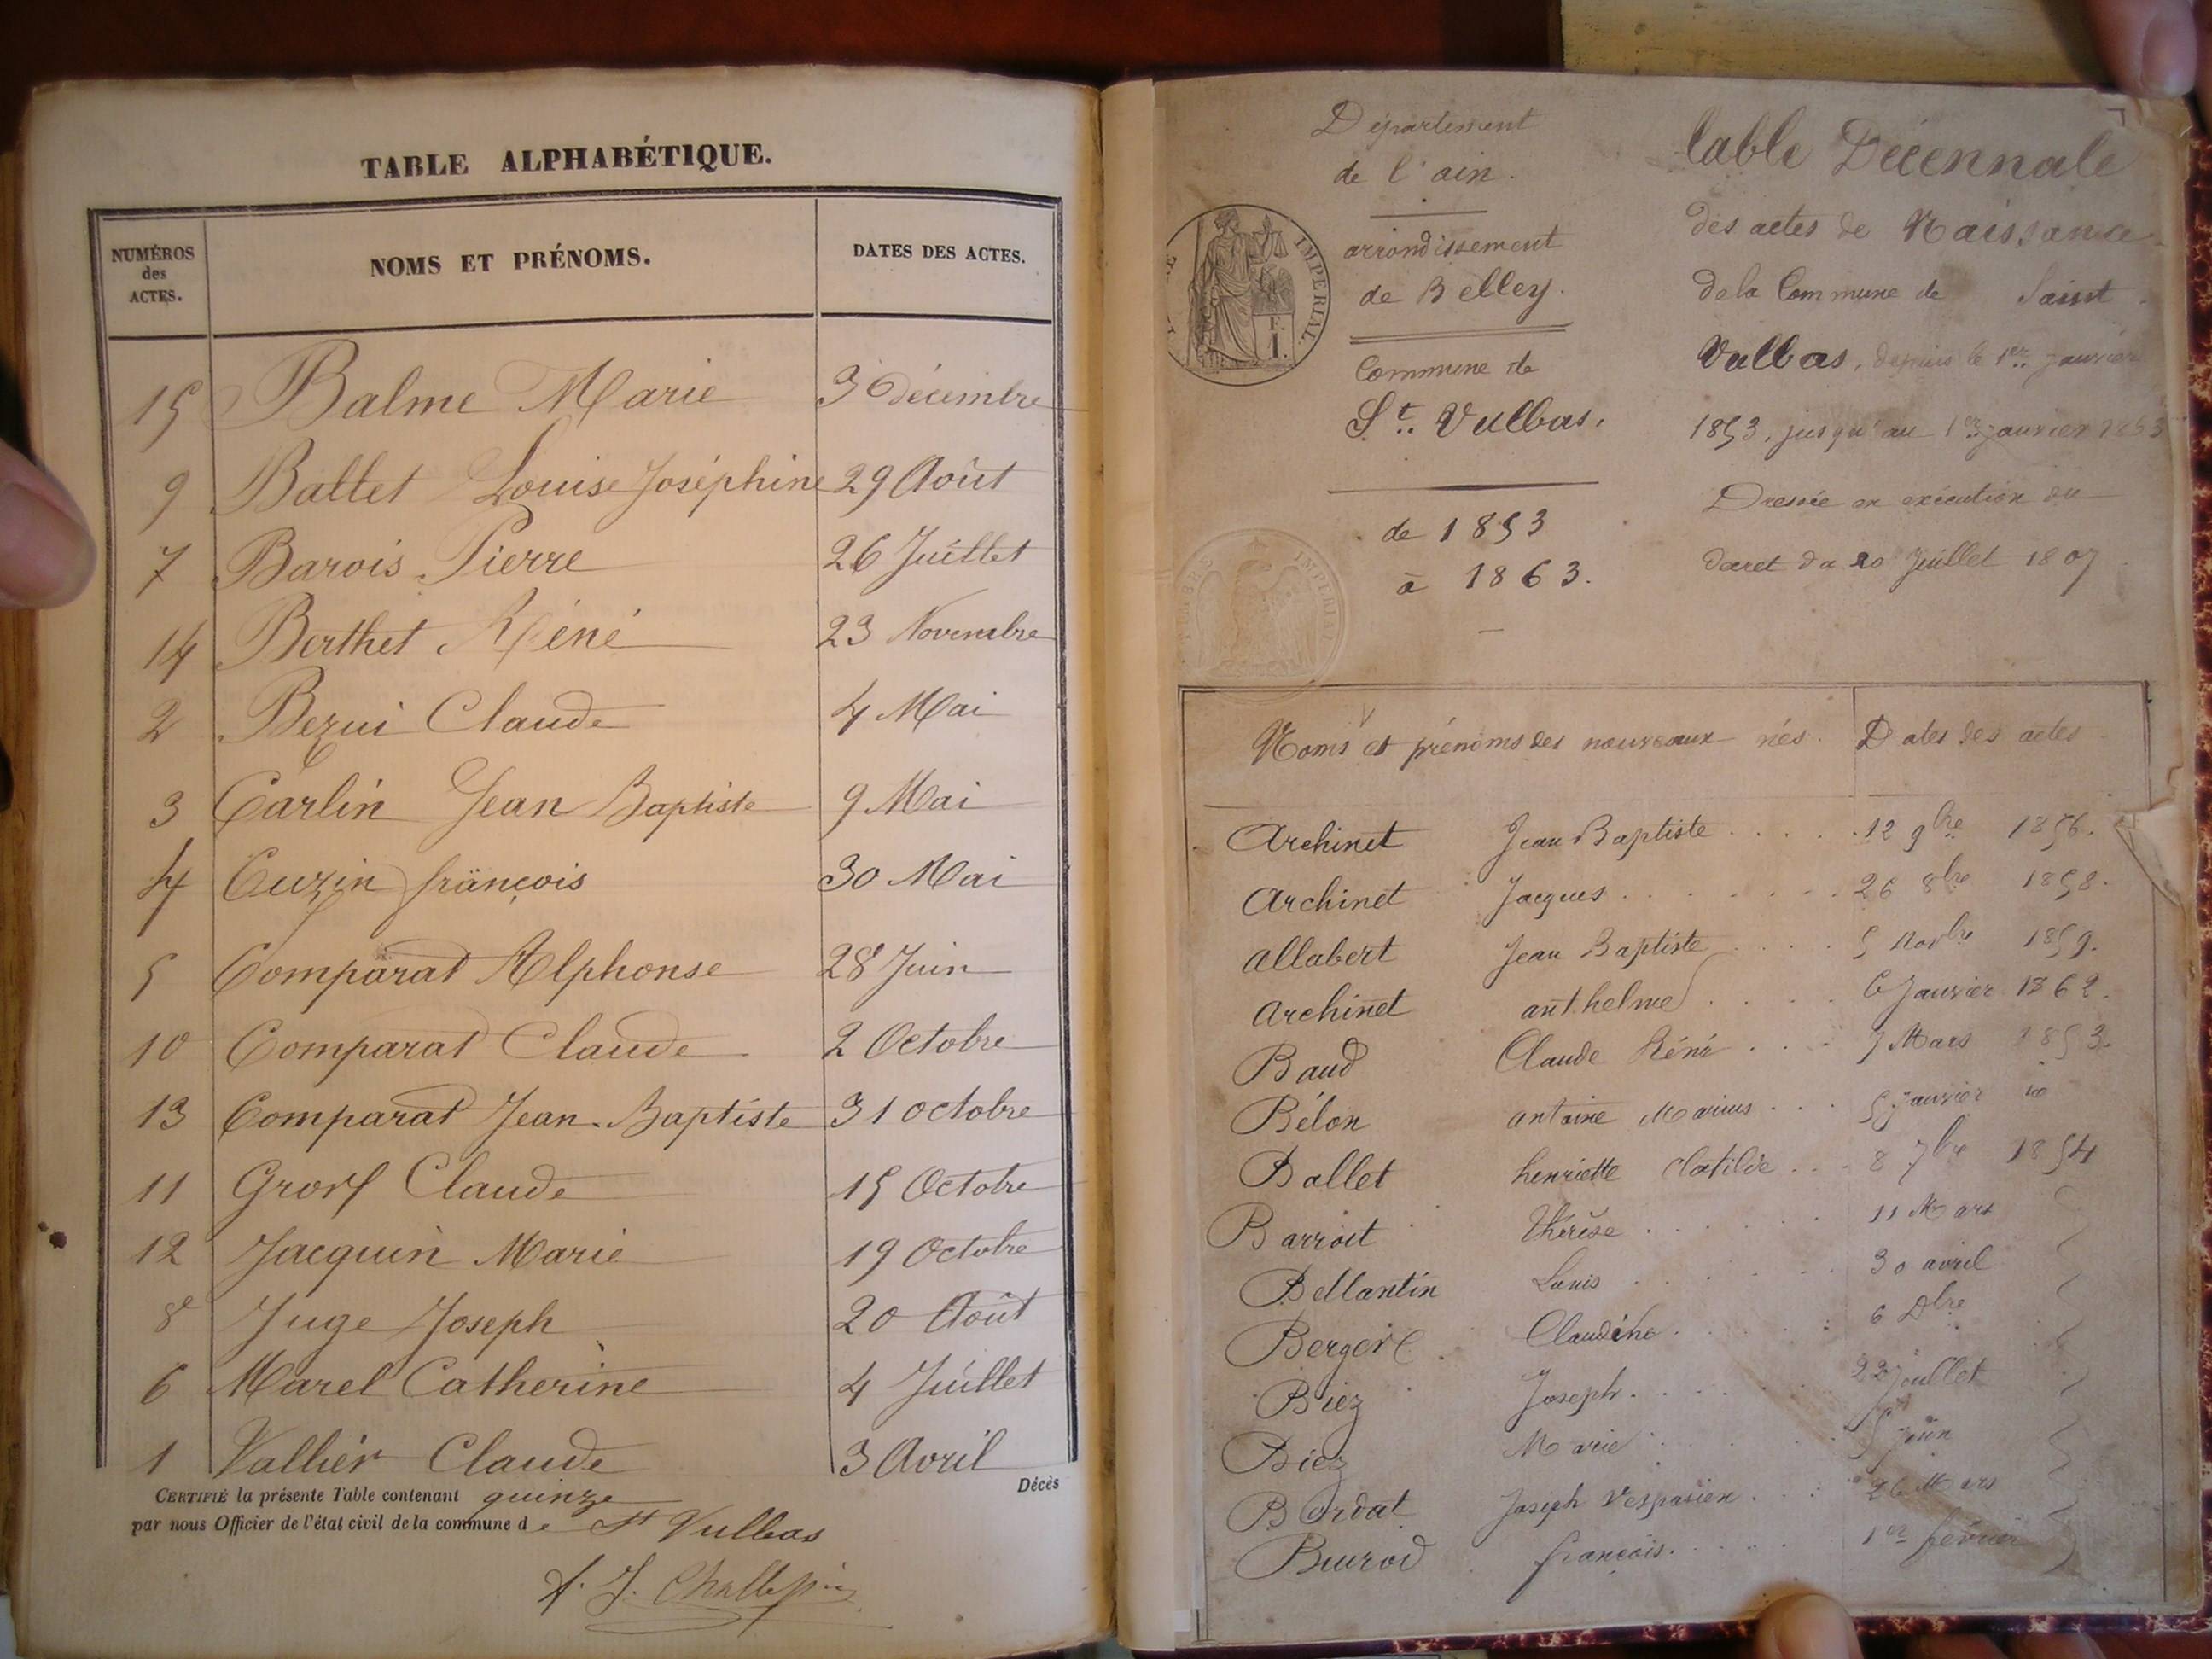 TABLE ALPHABÉTIQUE.
NUMÉROS des ACTES. NOMS ET PRÉNOMS. DATES DES ACTES.
15 Balme Marie 3 décembre
9 Ballet Louise Joséphine 29 Août
7 Barois Pierre 26 Juillet
14 Berthet Réné 23 Novembre
2 Bezui Claude 4 Mai
3 Carlin Jean Baptiste 9 Mai
4 Cuzin françois 30 Mai
5 Comparat Alphonse 28 Juin
10 Comparat Claude 2 Octobre
13 Comparat Jean-Baptiste 31 octobre
11 Claude 15 Octobre
12 Jacquin Marie 19 Octobre
8 Juge Joseph 20 Août
6 Marel Catherine 4 Juillet
1 Vallier Claude 3 Avril
Décès
CERTIFIÉ la présente Table contenant quinze
par nous Officier de l'état civil de la commune de St Vulbas
Département
de l'ain.
arrondissement
de Belley.
Commune de
St. Vulbas.
de 1853
à 1863.
IMPERIAL.
E.
I.
TIMBRE IMPERIAL
table Décennale
des actes de Naissance
de la Commune de Saint
Vulbas, depuis le 1er Janvier
1853, jusqu'au 1er janvier 1863
Dressée en exécution du
decret du 20 Juillet 1807
Noms et prénoms des nouveaux nés. Dates des actes
Archinet Jean Baptiste 12 9bre 1856.
Archinet Jacques 26 8bre 1858.
Allabert Jean Baptiste 5 Novbre 1859.
Archinet anthelme 6 Janvier 1862.
Baud Claude Réné 7 Mars 1853.
Bélon antoine Marius 5 janvier io
Ballet henriette Clotilde 8 7bre 1854
Barroit thérèse 11 Mars
Bellantin Louis 30 avril
Berger Claudine 6 Dbre
Biez Joseph 22 Juillet
Biez Marie 5 Juin
Bordat Joseph Vespasien 26 Mars
françois 1er février